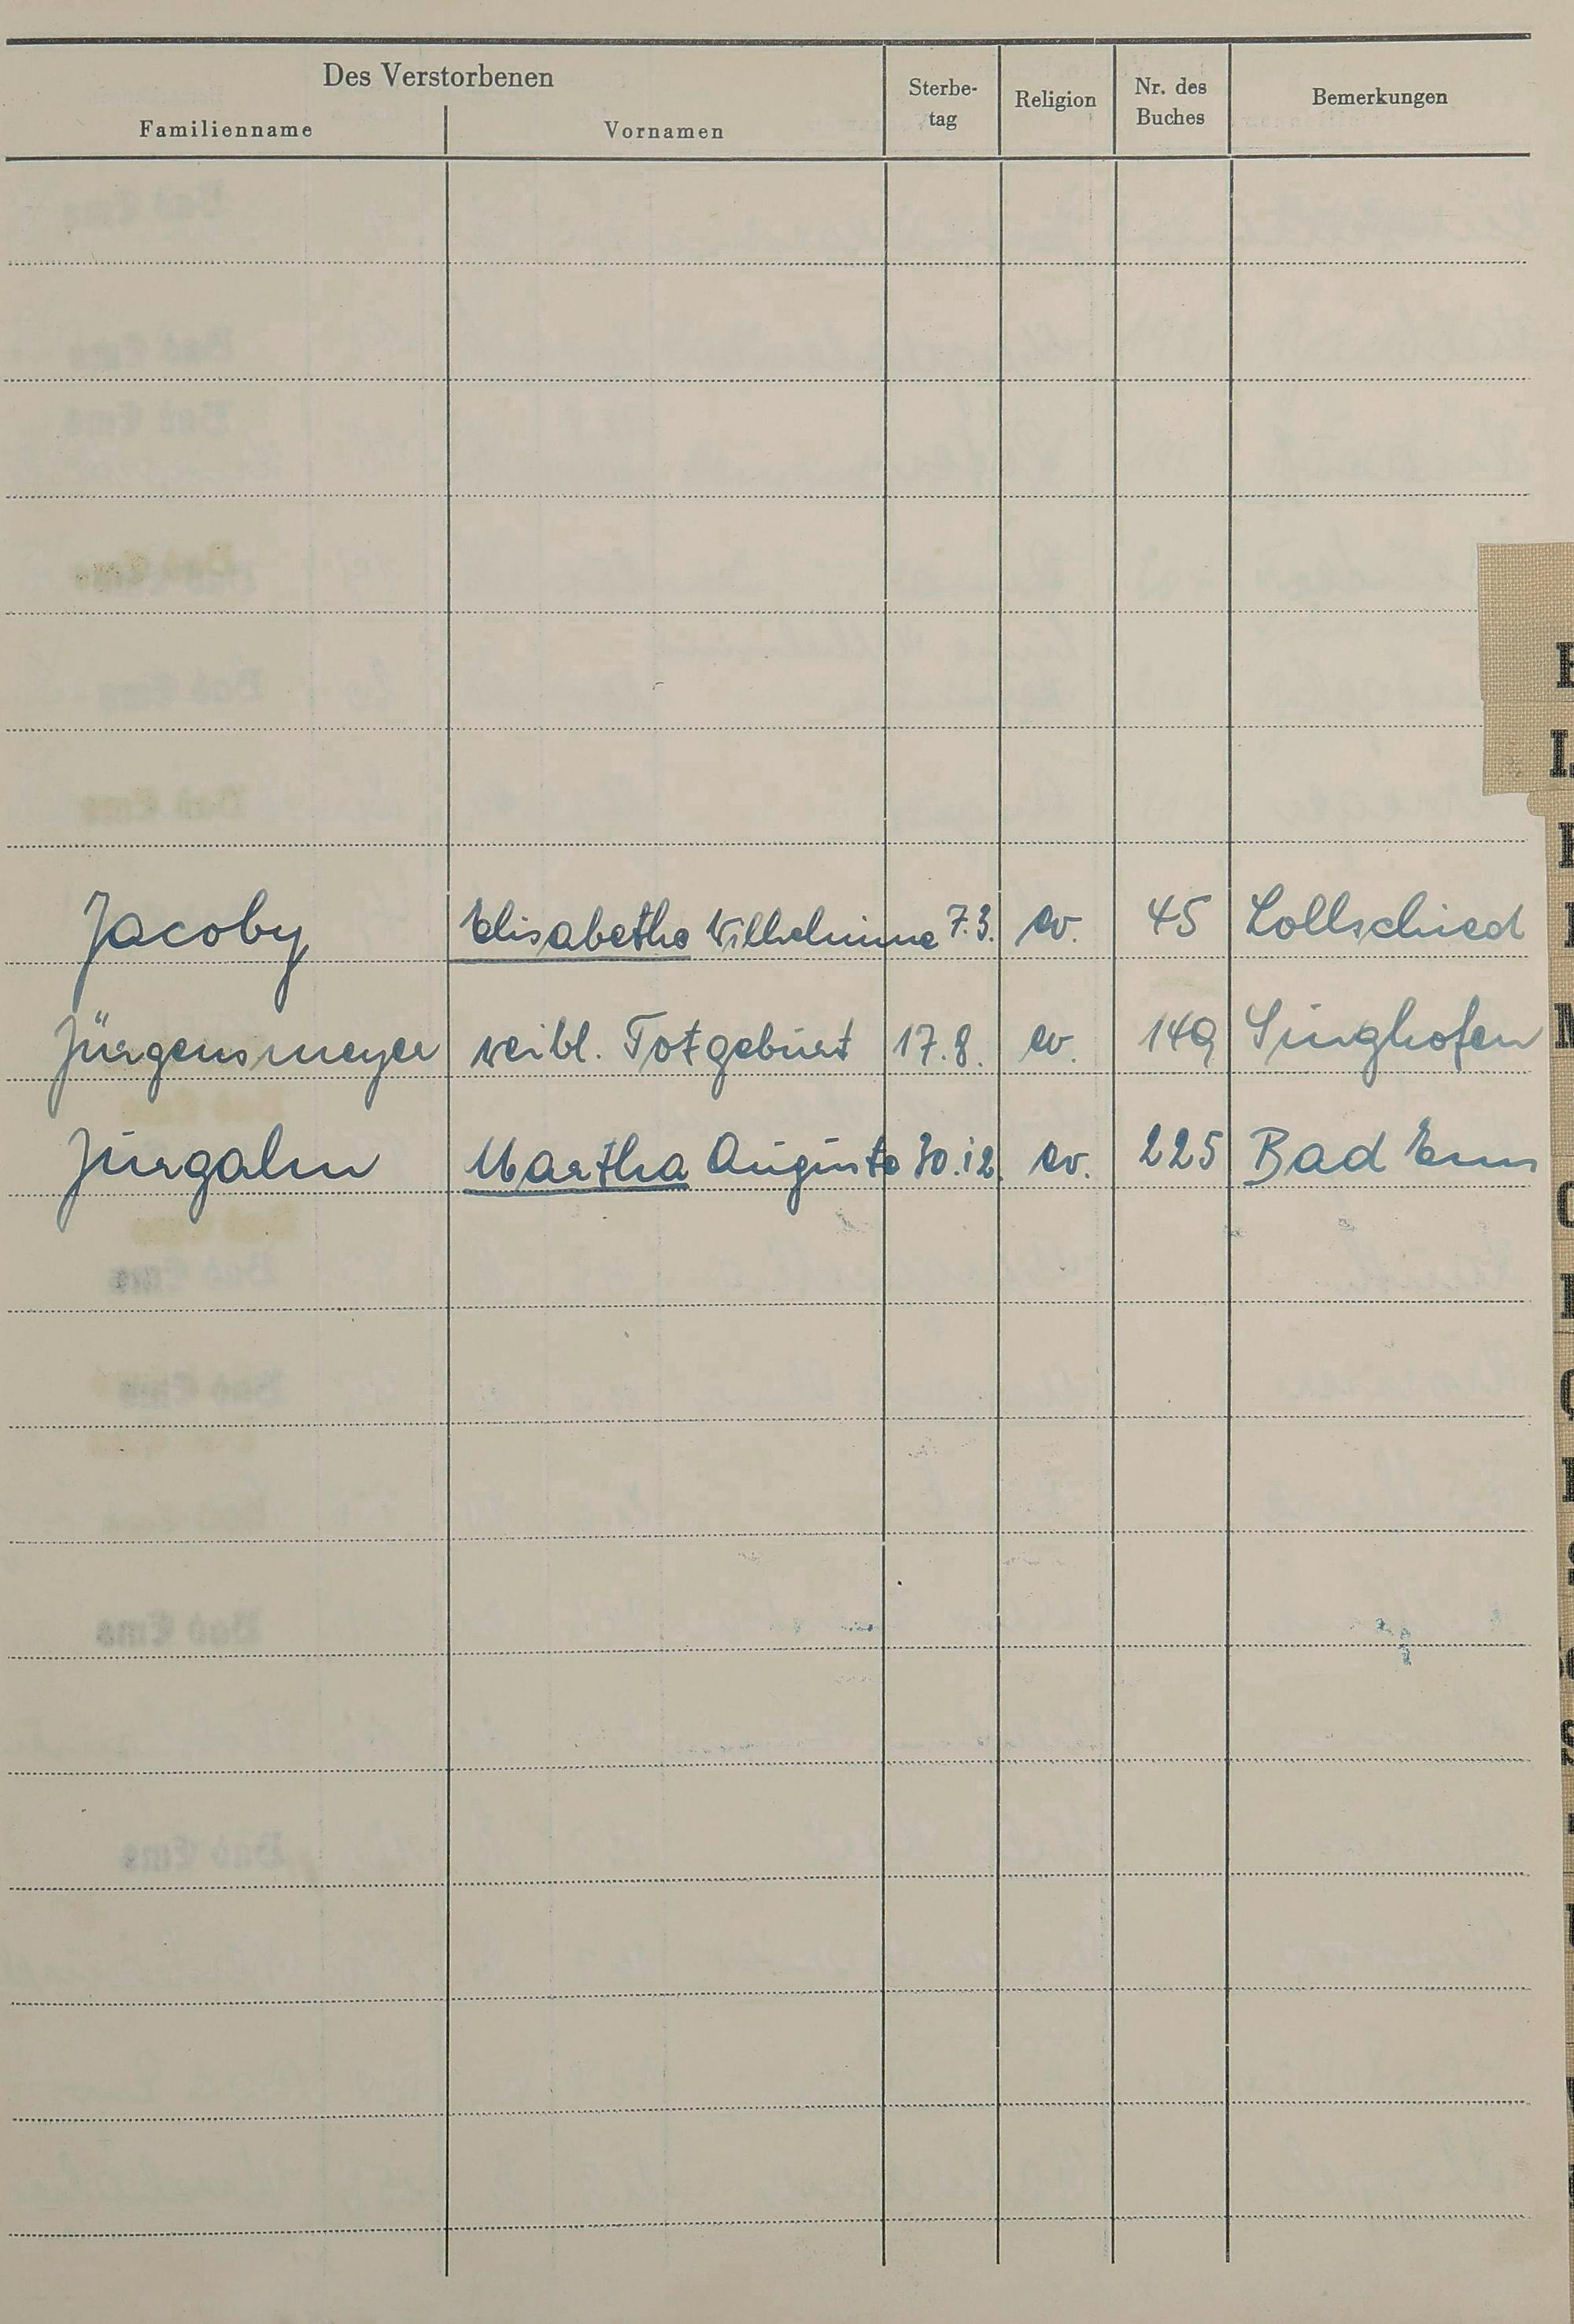 Des Verstorbenen
Familienname Vornamen Sterbe-tag Religion Nr. des Buches Bemerkungen
Jacoby Elisabethe Wilhelmine 7.3. ev. 45 Lollschied
Jürgensmeyer weibl. Totgeburt 17.8. ev. 149 Singhofen
Jurgahn Martha Auguste 30.12. ev. 225 Bad Ems